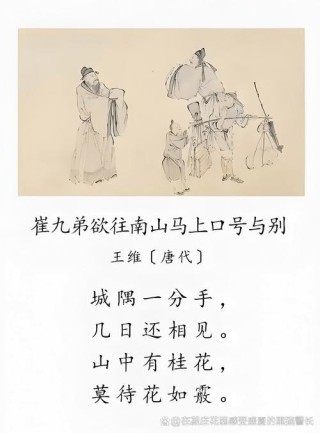 崔九弟欲往南山马上口号与别
王维〔唐代〕
城隅一分手，
几日还相见。
山中有桂花，
莫待花如霰。